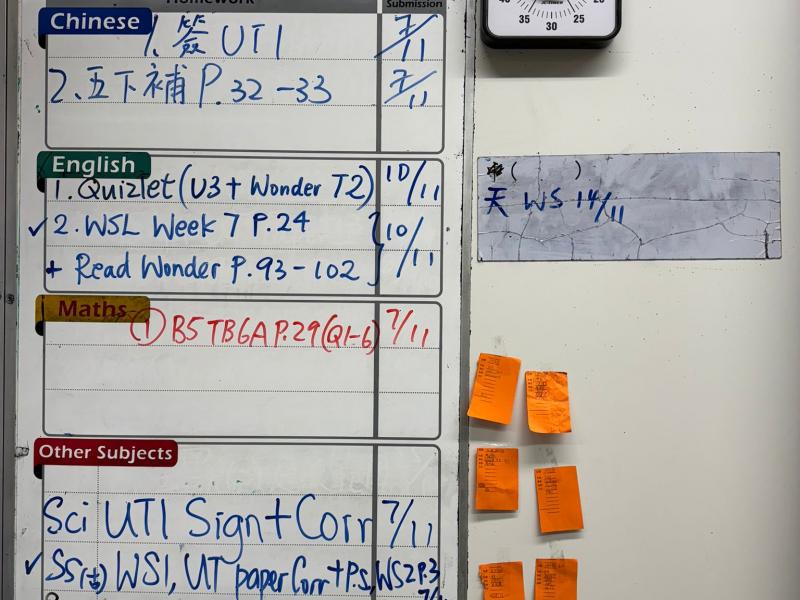 Homework
Submission
Chinese
1. 簽 UT1 7/11
2. 五下補 P.32-33 7/11
English
1. Quizlet (U3 + Wonder T2) 10/11
✓ 2. WSL Week 7 P.24 10/11
+ Read Wonder P.93-102
Maths
① B5 TB6A P.29 (Q1-6) 7/11
Other Subjects
Sci UT1 Sign + Corr 7/11
✓ SS WS1, UT paper Corr + P.S, WS2 P.3
35 30 25
( )
天 WS 14/11